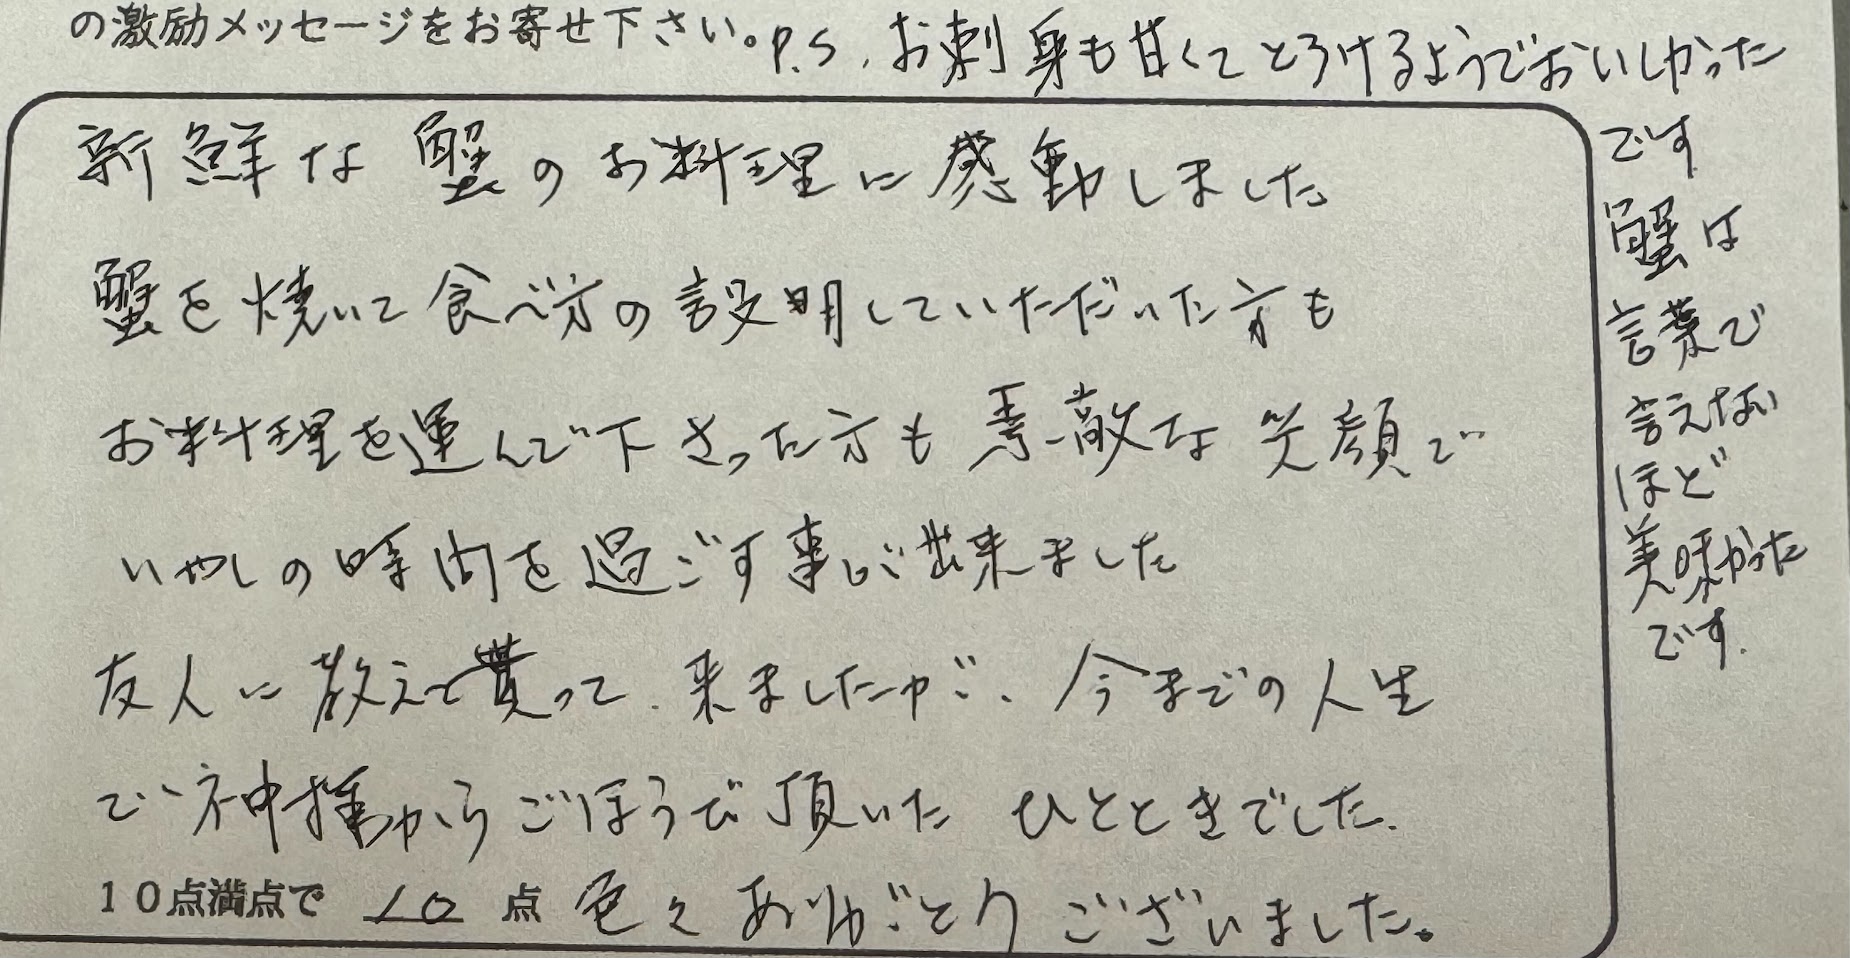 の激励メッセージをお寄せ下さい。
新鮮な蟹のお料理に感動しました
蟹を焼いて食べ方の説明していただいた方も
お料理を運んで下さった方も素敵な笑顔で
いやしの時間を過ごす事が出来ました
友人に教えて貰って、来ましたが、今までの人生
で神様からごほうび頂いたひとときでした。
10点満点で 10 点 色々ありがとうございました。
P.S. お刺身も甘くてとろけるようでおいしかった
です
蟹は
言葉で
言えない
ほど
美味かった
です.